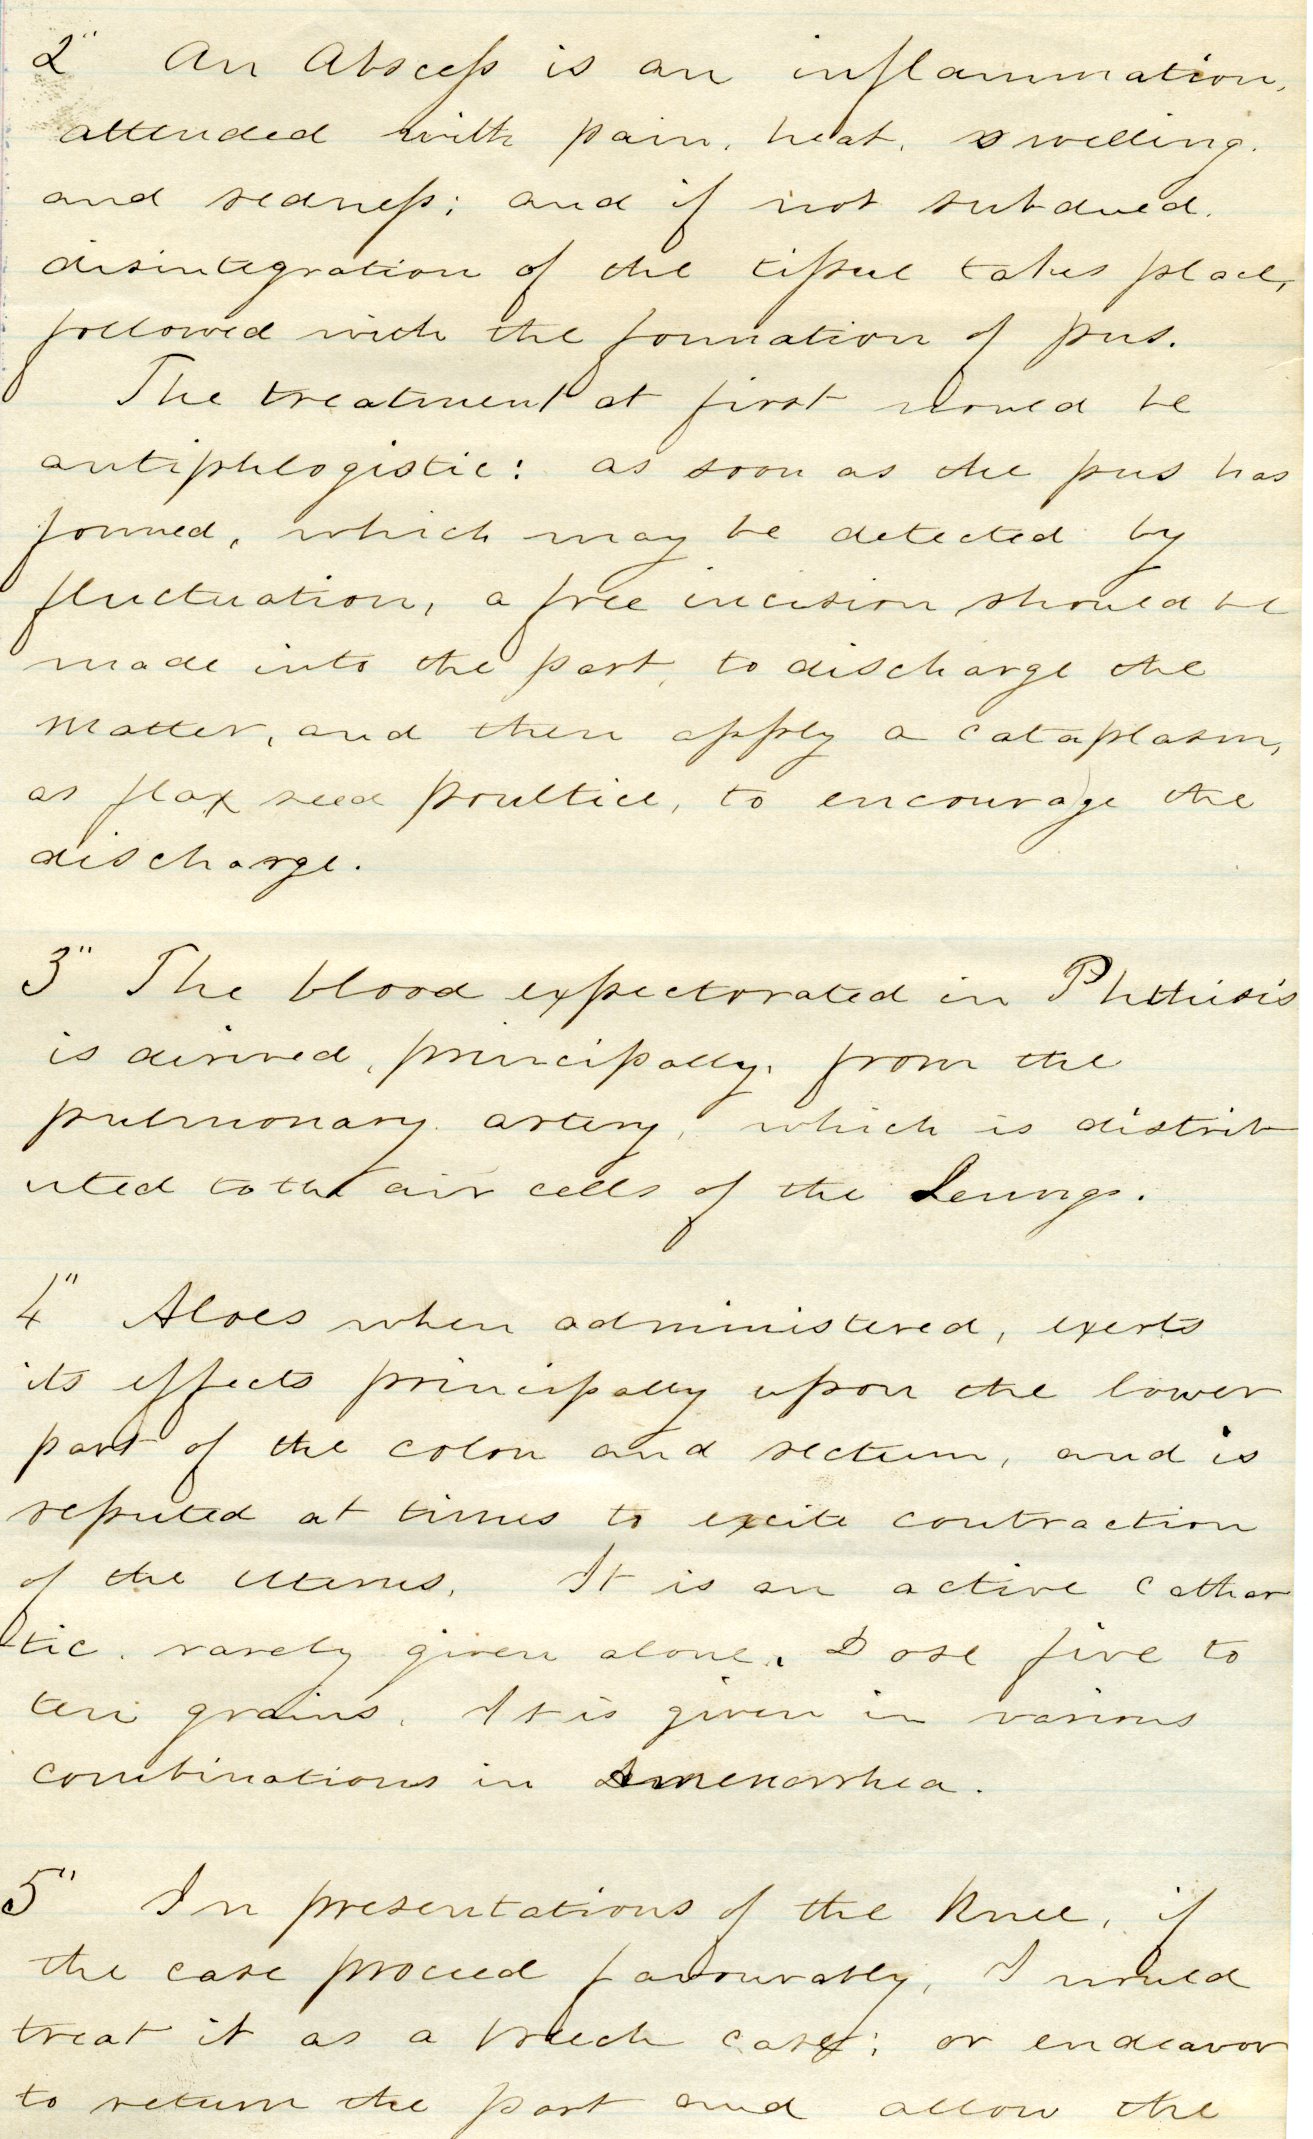 2" An Abscess is an inflammation,
attended with pain, heat, swelling.
and redness; and if not subdued.
disintegration of the tissue takes place,
followed with the formation of pus.
The treatment at first would be
antiphlogistic: as soon as the pus has
formed, which may be detected by
fluctuation, a free incision should be
made into the part, to discharge the
matter, and then apply a cataplasm,
as flax seed poultice, to encourage the
discharge.
3" The blood expectorated in Phthisis
is derived, principally, from the
pulmonary artery, which is distrib
uted to the air cells of the Lungs.
4" Aloes when administered, exerts
its effects principally upon the lower
part of the colon and rectum, and is
reputed at times to excite contraction
of the uterus. It is an active cathar
-tic. rarely given alone. Dose five to
ten grains. It is given in various
combinations in Amenorrhea.
5" In presentations of the Knee, if
the case proceed favourably, I would
treat it as a breech case; or endeavor
to return the part and allow the